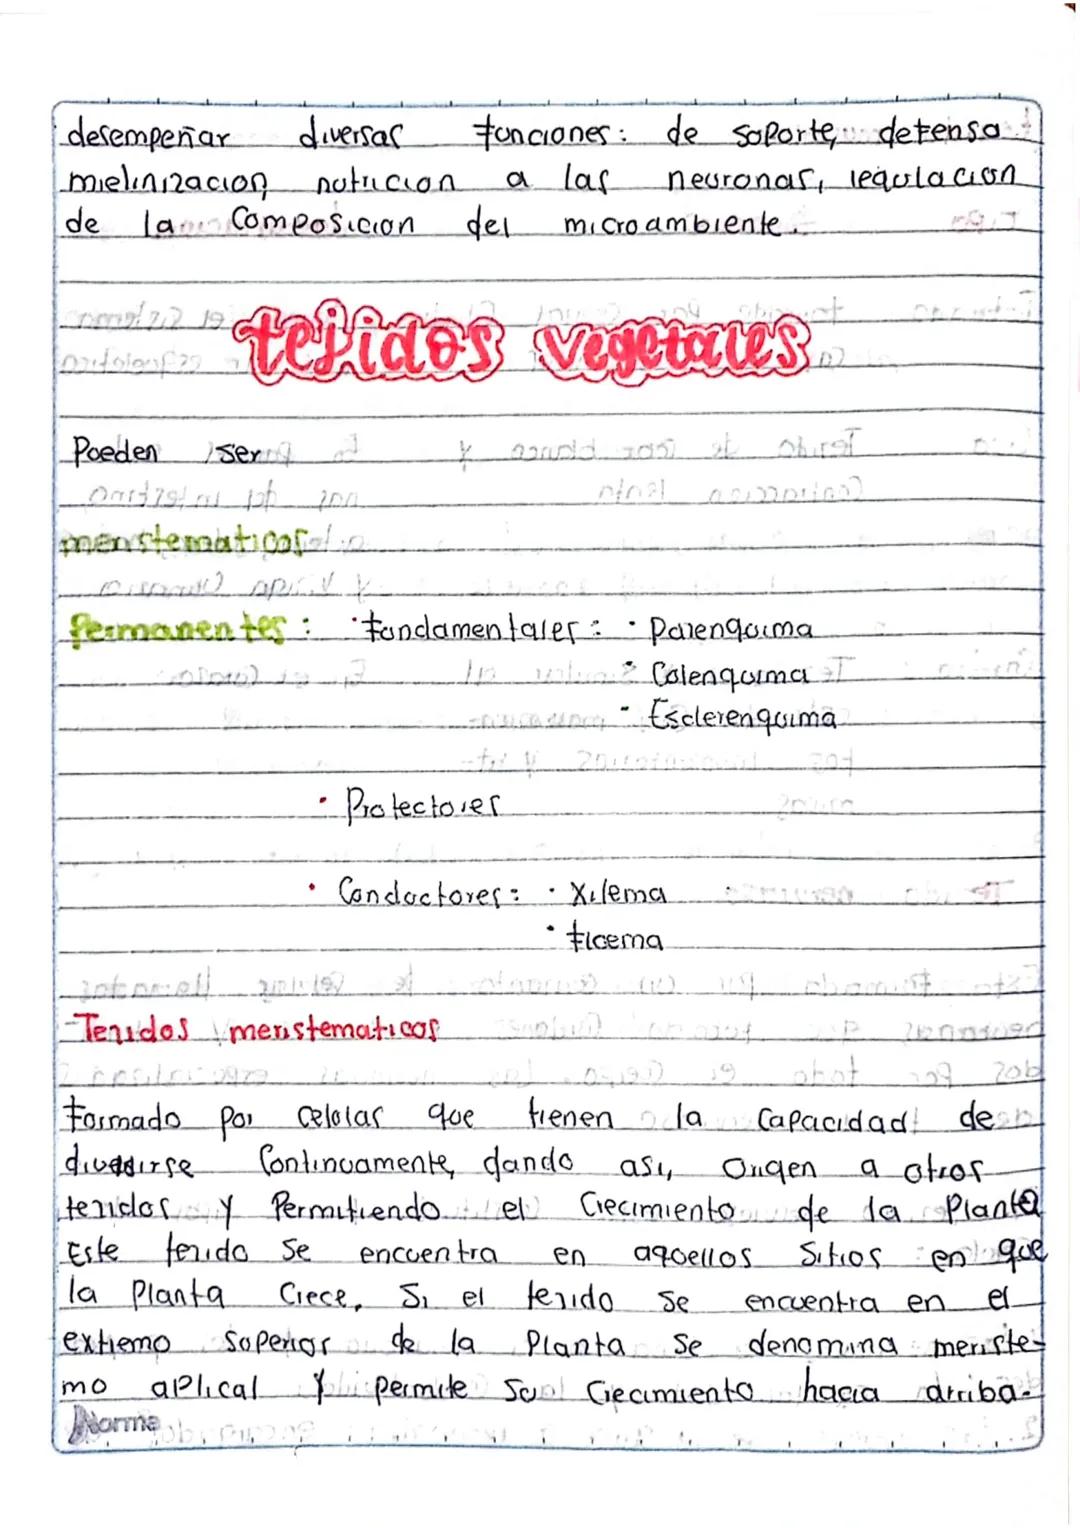 desempeñar diversas funciones: de soporte, defensa
mielinizacion, nutricion a las neuronas, regulacion
de la Composicion del microambiente.
tejidos vegetales
Pueden ser
meristematicos
Permanentes: · fundamentales: · Parenquima
· Colenquima
· Esclerenquima
· Protectores
· Conductores: · Xilema
· floema
-Tejidos meristematicos
formado por celulas que tienen la Capacidad de
dividirse Continuamente, dando asi, Origen a otros
tejidos y Permitiendo el Crecimiento de la Planta
Este tejido Se encuentra en aquellos Sitios en que
la Planta Crece, Si el tejido Se encuentra en el
extremo Superior de la Planta Se denomina meriste-
mo aplical y permite Su Crecimiento hacia arriba.
Norma